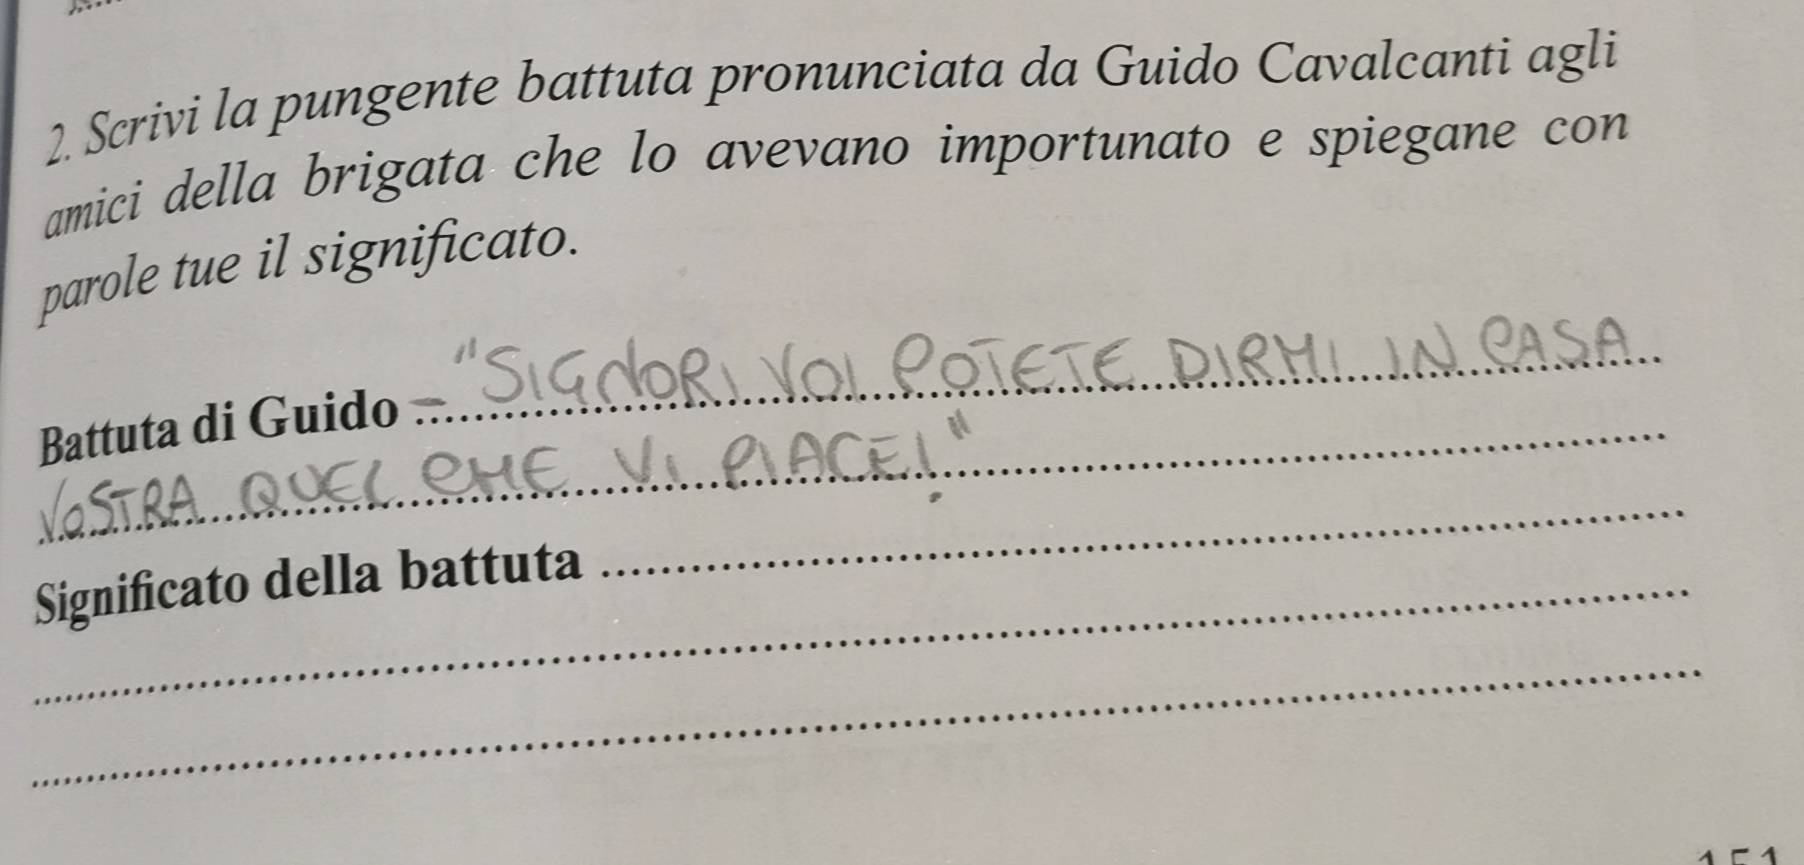 2. Scrivi la pungente battuta pronunciata da Guido Cavalcanti agli
amici della brigata che lo avevano importunato e spiegane con
parole tue il significato.
Battuta di Guido - "SIGNORI VOI POTETE DIRMI IN CASA
VOSTRA QUEL CHE VI PIACE!"
Significato della battuta
151